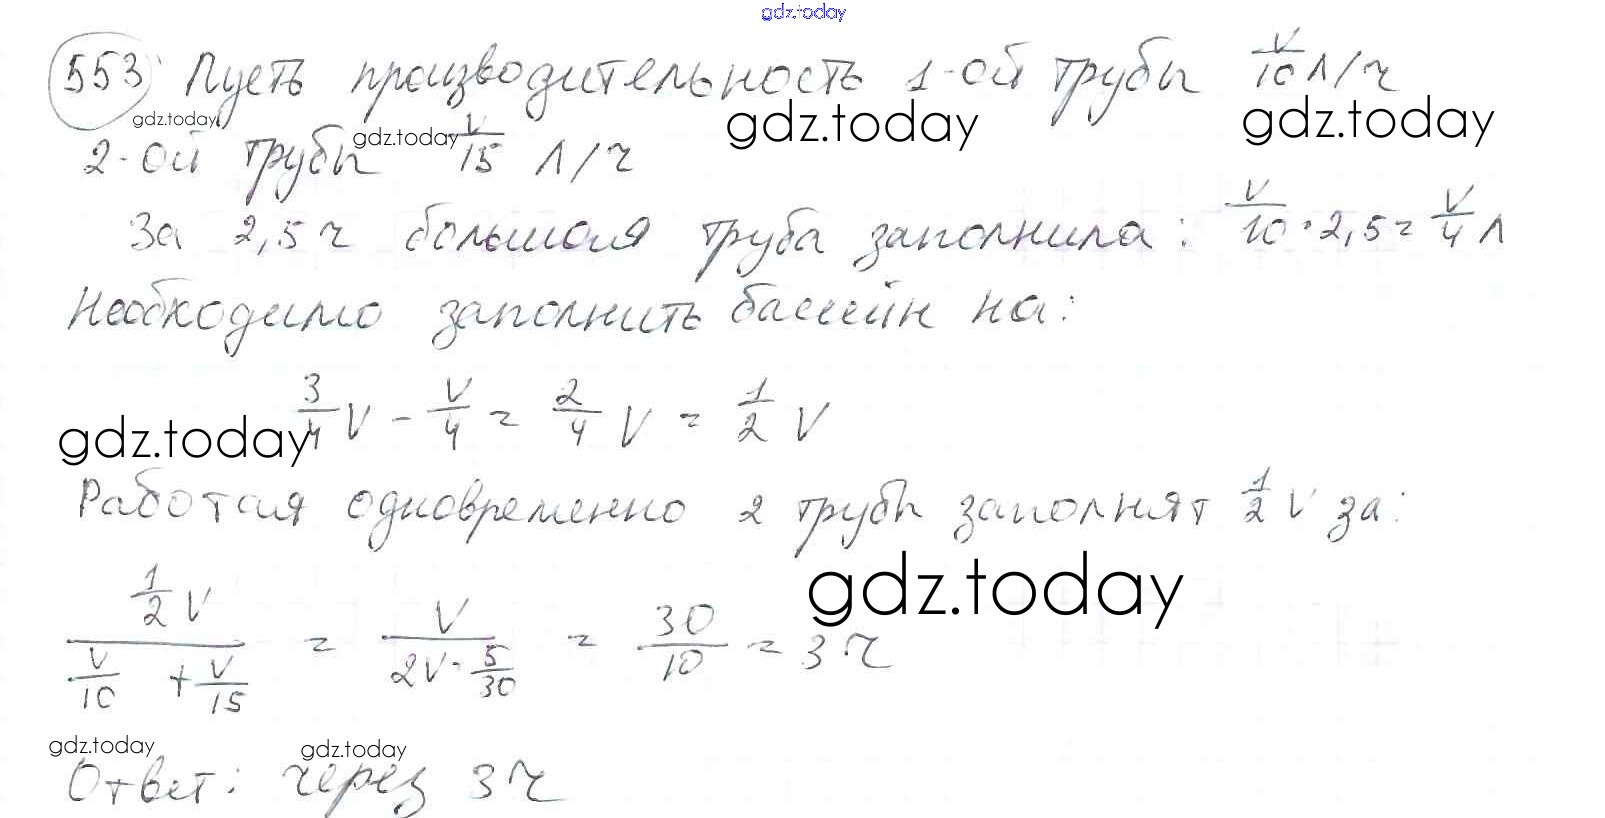 gdz.today
553 Пусть производительность 1-ой трубы V/10 л/ч
gdz.today gdz.today gdz.today gdz.today
2-ой трубы V/15 л/ч
За 2,5 ч большая труба заполнила: V/10 · 2,5 = V/4 л
Необходимо заполнить бассейн на:
3/4 V - V/4 = 2/4 V = 1/2 V
gdz.today
Работая одновременно 2 трубы заполнят 1/2 V за:
gdz.today
(1/2 V)/(V/10 + V/15) = V/(2V · 5/30) = 30/10 = 3 ч
gdz.today gdz.today
Ответ: через 3 ч